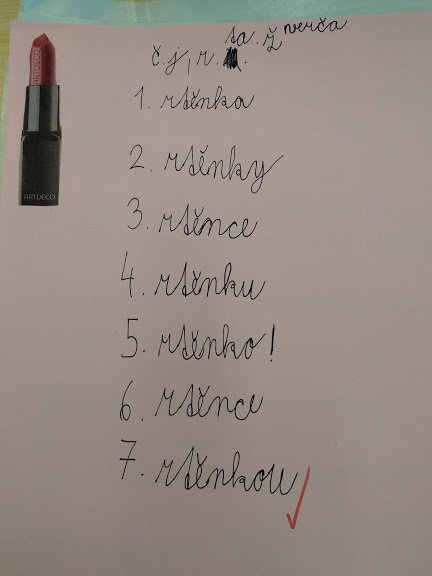 verča
ta.
č.j, r. ž
1. rtěnka
2. rtěnky
3. rtěnce
4. rtěnku
5. rtěnko!
6. rtěnce
7. rtěnkou
ARTDECO
ARTDECO